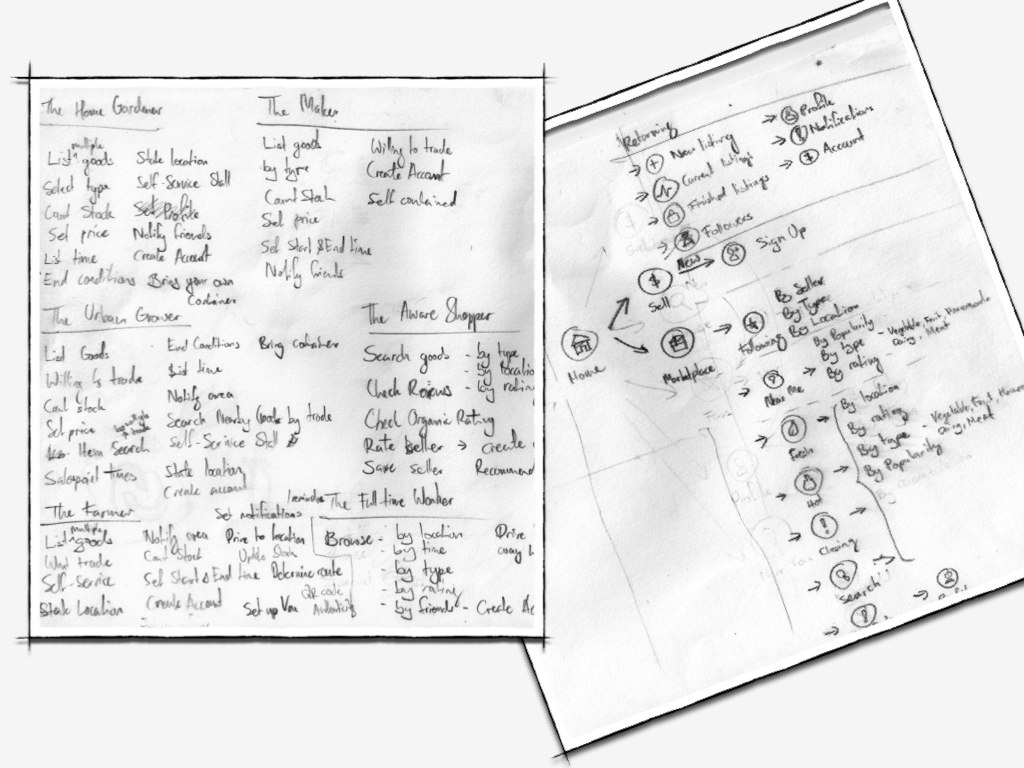 The Home Gardener
multiple
List goods
Select type
Count Stock
Set price
List time
End conditions
State location
Self-Service Stall
Set Profile
Notify friends
Create Account
Bring your own
Container
The Maker
List goods
by type
Count Stock
Set price
Set Start & End time
Notify friends
Willing to trade
Create Account
Self contained
The Urban Grower
List Goods
Willing to trade
Count stock
Set price
Item Search
Salepoint times
End Conditions
List time
Notify area
Search Nearby Goods by trade
Self-Service Stall
State location
Create account
Bring container
The Aware Shopper
Search goods - by type
- by location
- by rating
Check Reviews
Check Organic Rating
Rate seller → create
Save seller
Recommend
The Farmer
multiple
List goods
Want trade
Self-Service
State Location
Notify area
Count Stock
Set Start & End time
Create Account
Set notifications
/reminders
Drive to location
Update Stock
Determine route
QR code
Set up Van
Authenticity
The Full time Worker
Browse - by location
- by time
- by type
- by rating
- by friends - Create Ac
Drive
Returning
→ New listing
→ Current listings
→ Finished listings
→ Followers
→ Profile
→ Notifications
→ Account
New
→ Sign Up
Sell
Home
Marketplace
Following
By Seller
By Type
By Location
→ Near me
→ By Popularity
→ By type - Vegetable, Fruit, Homemade
Dairy, Meat
→ By rating
→ Fresh
→ Hot
→ Closing
By location
By rating
By type - Vegetable, Fruit, Homemade
Dairy, Meat
By Popularity
→ Search